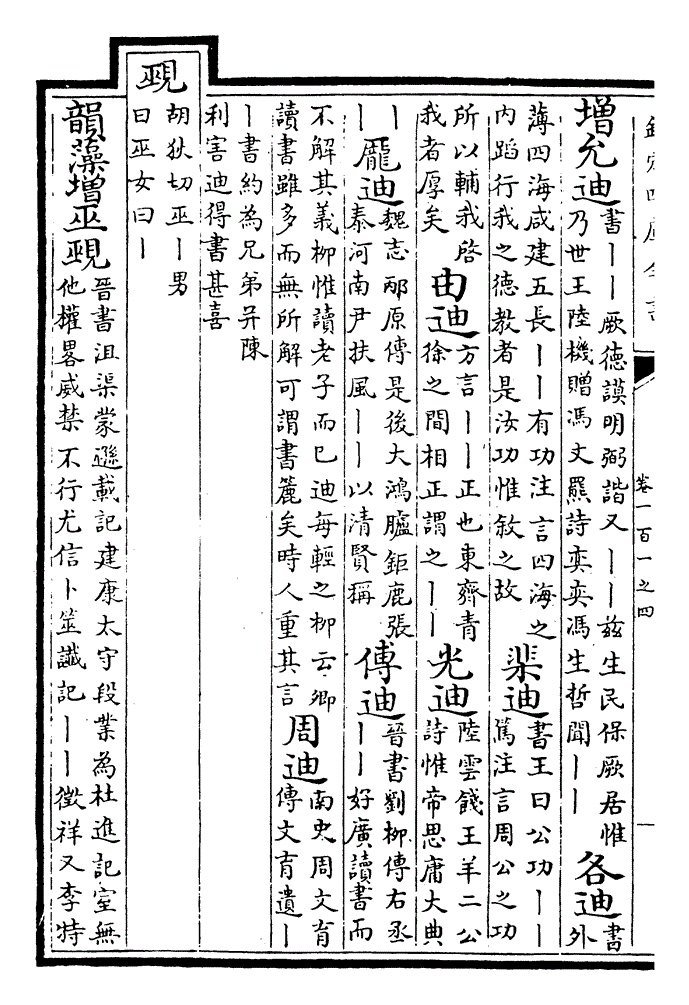 欽定四庫全書
卷一百一之四
増允迪
書丨丨厥徳謨明弼諧又丨丨兹生民保厥居惟
乃世王陸機贈馮文羆詩奕奕馮生哲聞丨丨
各迪
書
外
薄四海咸建五長丨丨有功注言四海之
内蹈行我之徳教者是汝功惟敘之故
棐迪
書王曰公功丨丨
篤注言周公之功
所以輔我啓
我者厚矣
由迪
方言丨丨正也東齊青
徐之間相正謂之丨丨
光迪
陸雲餞王羊二公
詩惟帝思庸大典
丨
丨
龎迪
魏志邴原傳是後大鴻臚鉅鹿張
泰河南尹扶風丨丨以清賢稱
傅迪
晉書劉柳傳右丞
丨丨好廣讀書而
不解其義柳惟讀老子而已迪每輕之柳云卿
讀書雖多而無所解可謂書簏矣時人重其言
周迪
南史周文育
傳文育遺丨
丨書約為兄弟并陳
利害迪得書甚喜
覡
胡狄切巫丨男
曰巫女曰丨
韻藻増巫覡
晉書沮渠蒙遜載記建康太守段業為杜進記室無
他權畧威禁不行尤信卜筮讖記丨丨徵祥又李特